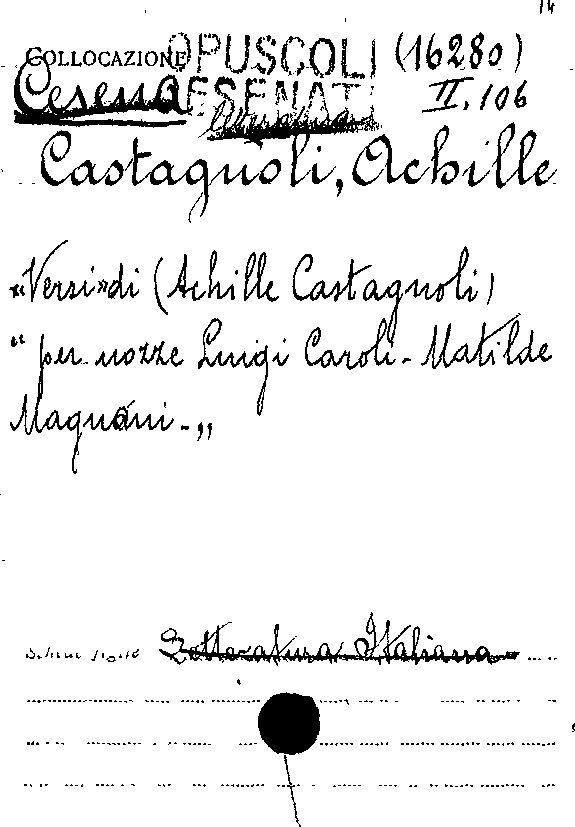 14
COLLOCAZIONE OPUSCOLI (16280)
Cesena CESENATI II.106
Castagnoli, Achille
"Versi" di (Achille Castagnoli)
" per nozze Luigi Caroli - Matilde
Magnani - "
Schede fatte Letteratura Italiana